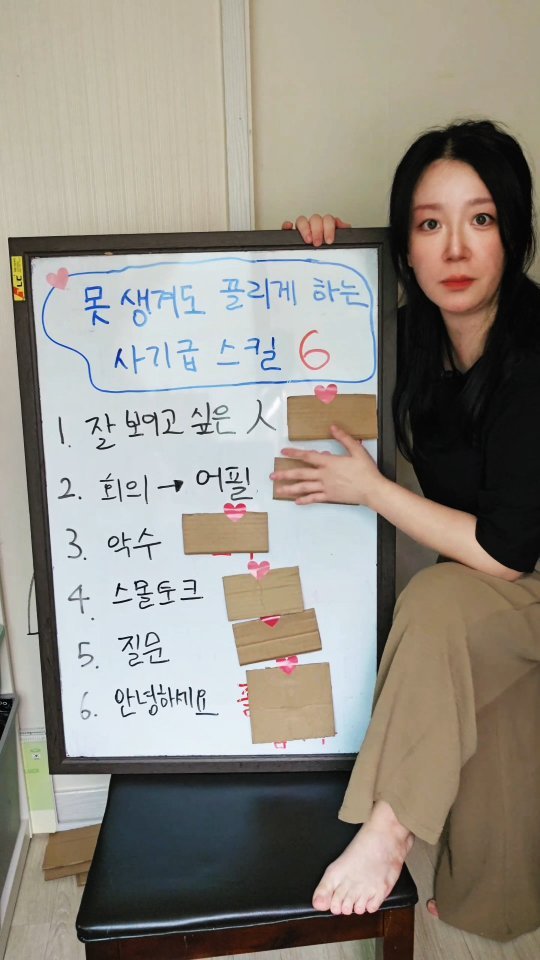 못 생겨도 끌리게 하는
사기급 스킬 6
1. 잘 보이고 싶은 人
2. 회의 → 어필
3. 악수
4. 스몰토크
5. 질문
6. 안녕하세요